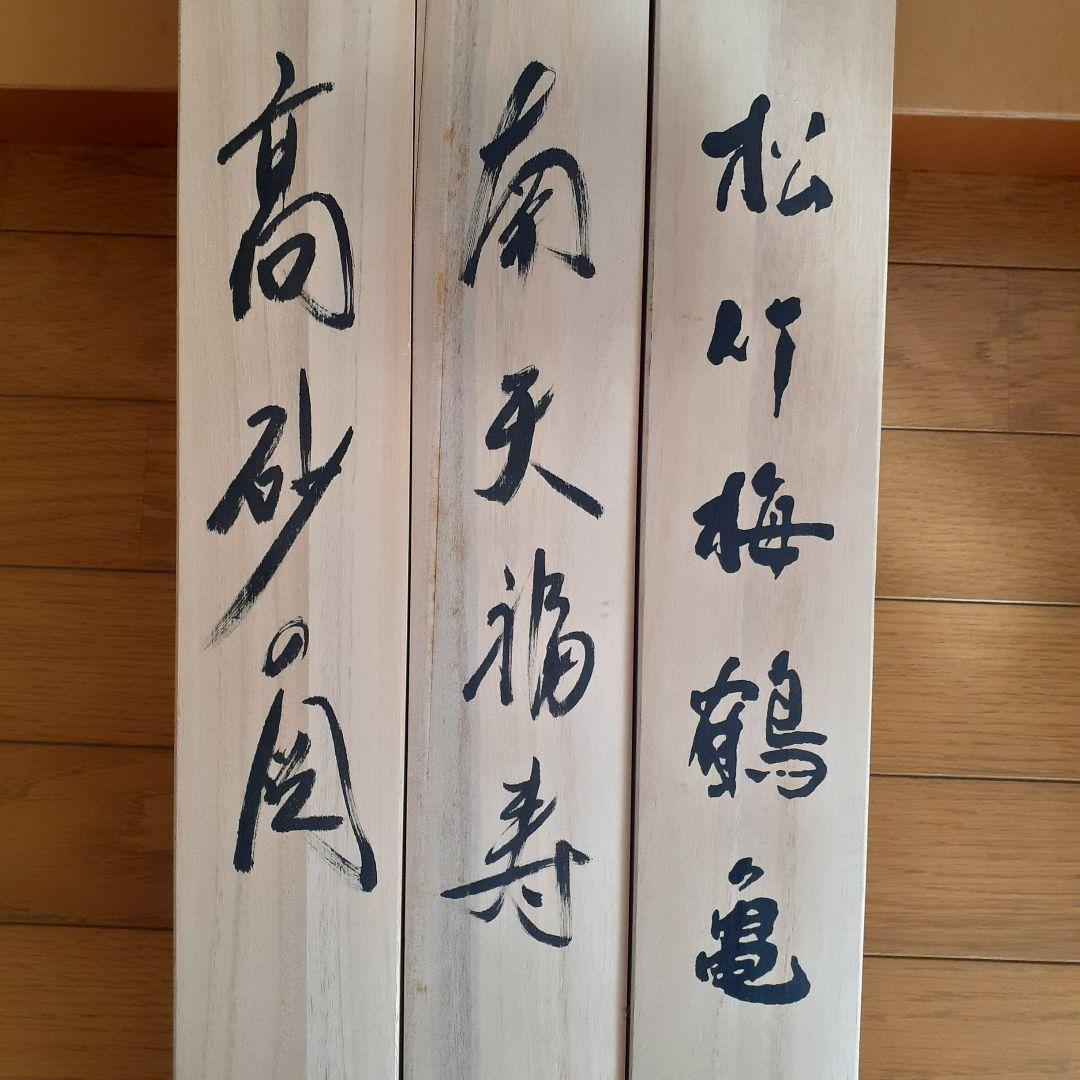 松竹梅鶴亀
南天福寿
高砂の図